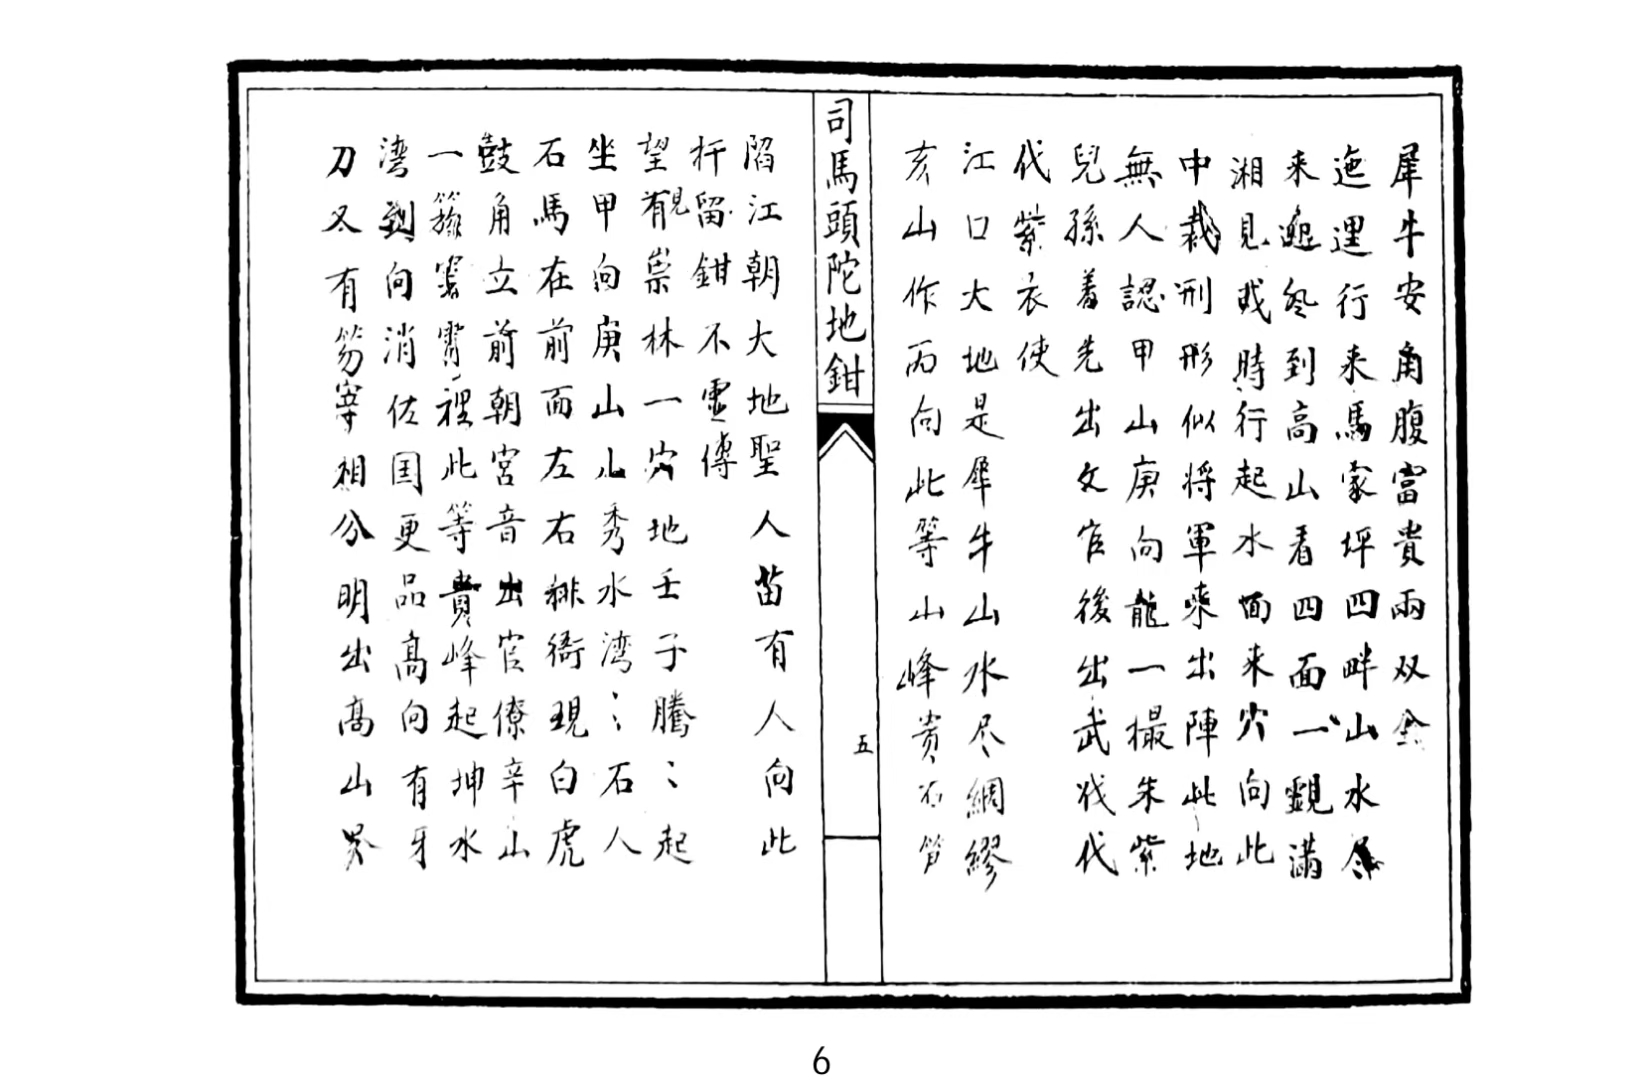 犀牛安角腹富貴兩双全
迤逦行来馬家坪四畔山水尽
来到高山看四面一觀滿
湘見或時行起水面来穴向此
中裁形形似将軍乘出陣此地
無人認甲山庚向龍一撮朱紫
兒孫着先出文官後出武代代
代紫衣使
江口大地是犀牛山水尽綢繆
亥山作丙向此等山峰貴不
司馬頭陀地鉗
五
陷江朝大地聖人苗有人向此
扦留鉗不靈傳
望見有崇林一穴地壬子騰〻起
坐甲向庚山山秀水湾〻石人
石馬在前面左右排衙現白虎
鼓角立前朝宮音出官僚辛山
一裡此等貴峰起坤水
湾到向消佐国更品高向有牙
刀又有笏相分明出高山界
6